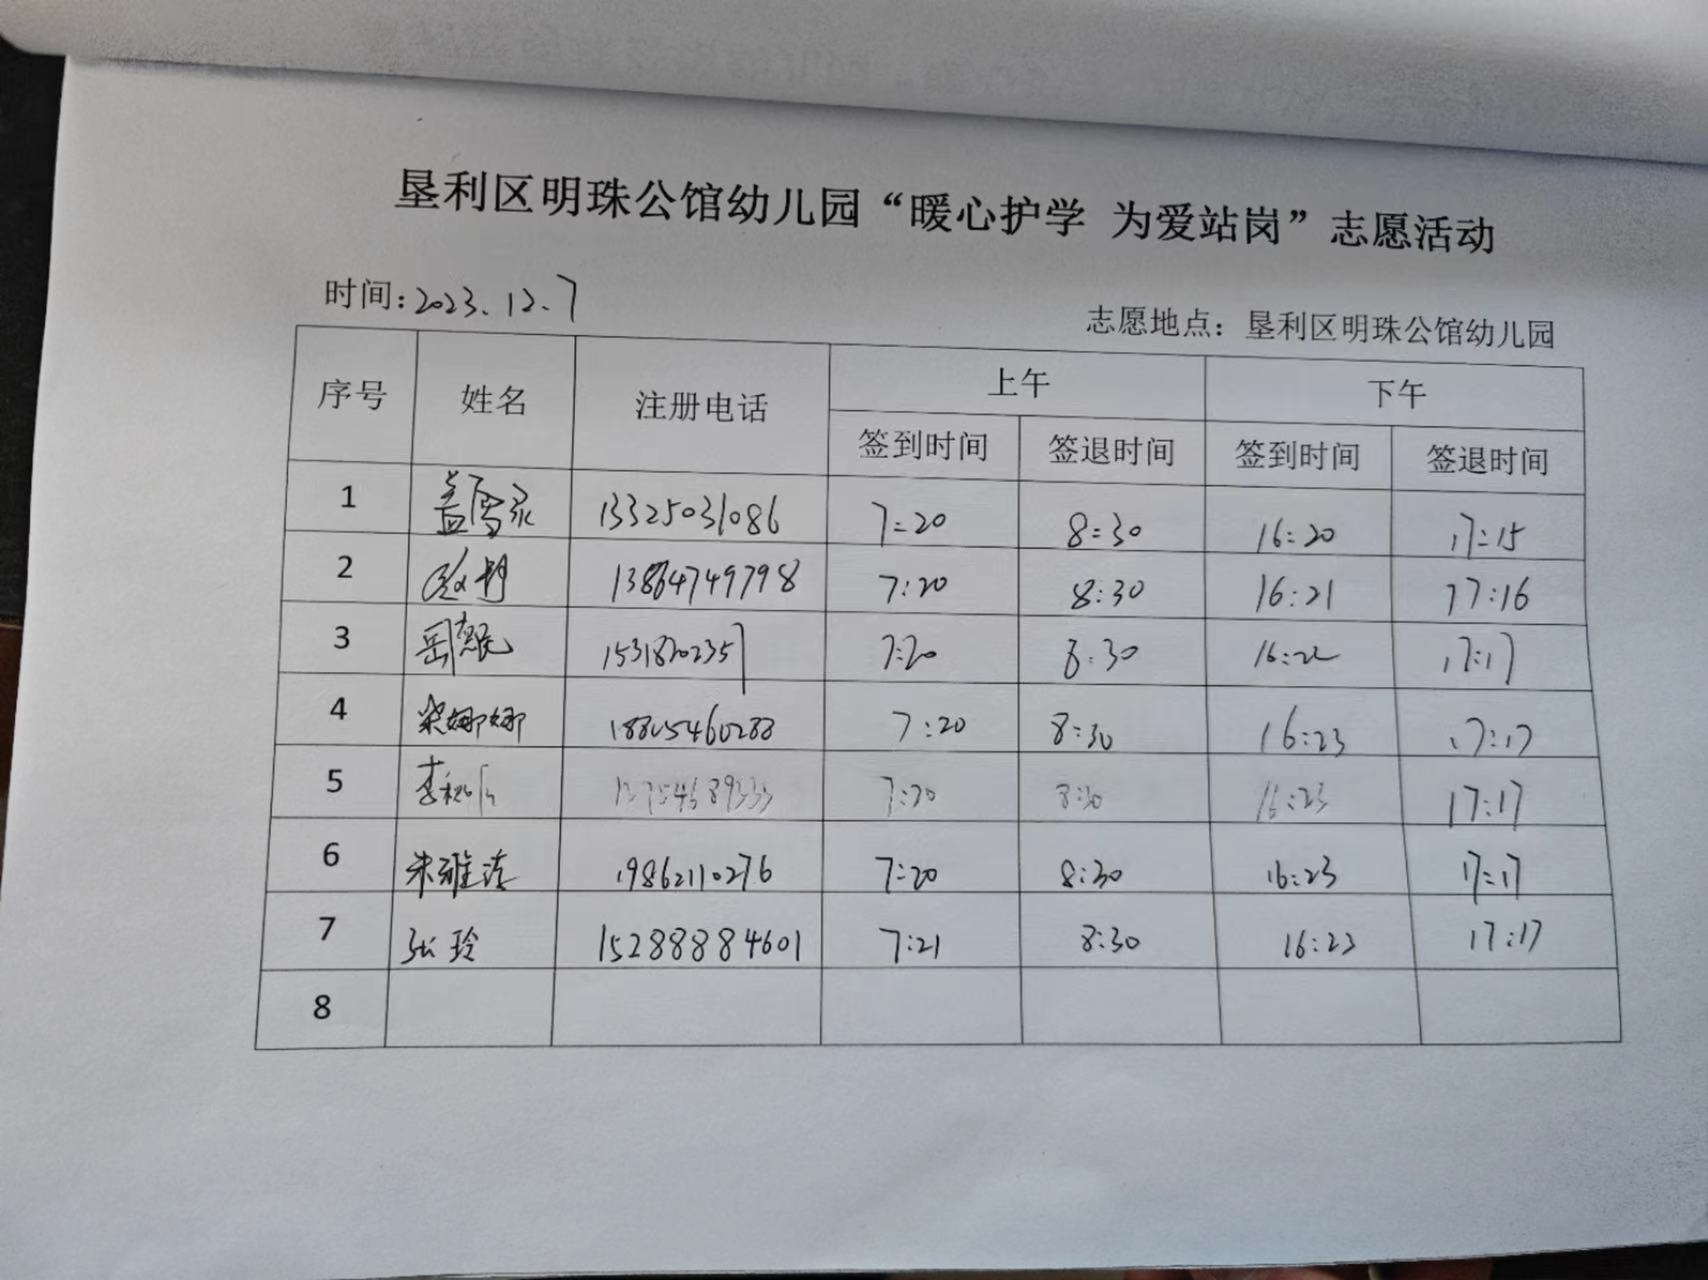 垦利区明珠公馆幼儿园“暖心护学 为爱站岗”志愿活动
时间:2023.12.7
志愿地点：垦利区明珠公馆幼儿园
序号 姓名 注册电话 上午 下午
签到时间 签退时间 签到时间 签退时间
1 盖雪 13325031086 7:20 8:30 16:20 17:15
2 赵 13864749798 7:20 8:30 16:21 17:16
3 岳 7:20 8:30 16:22 17:17
4 梁娜娜 7:20 8:30 16:23 17:17
5 李 7:20 8:30 16:23 17:17
6 朱雅洁 19862110276 7:20 8:30 16:23 17:17
7 张玲 15288884601 7:21 8:30 16:22 17:17
8